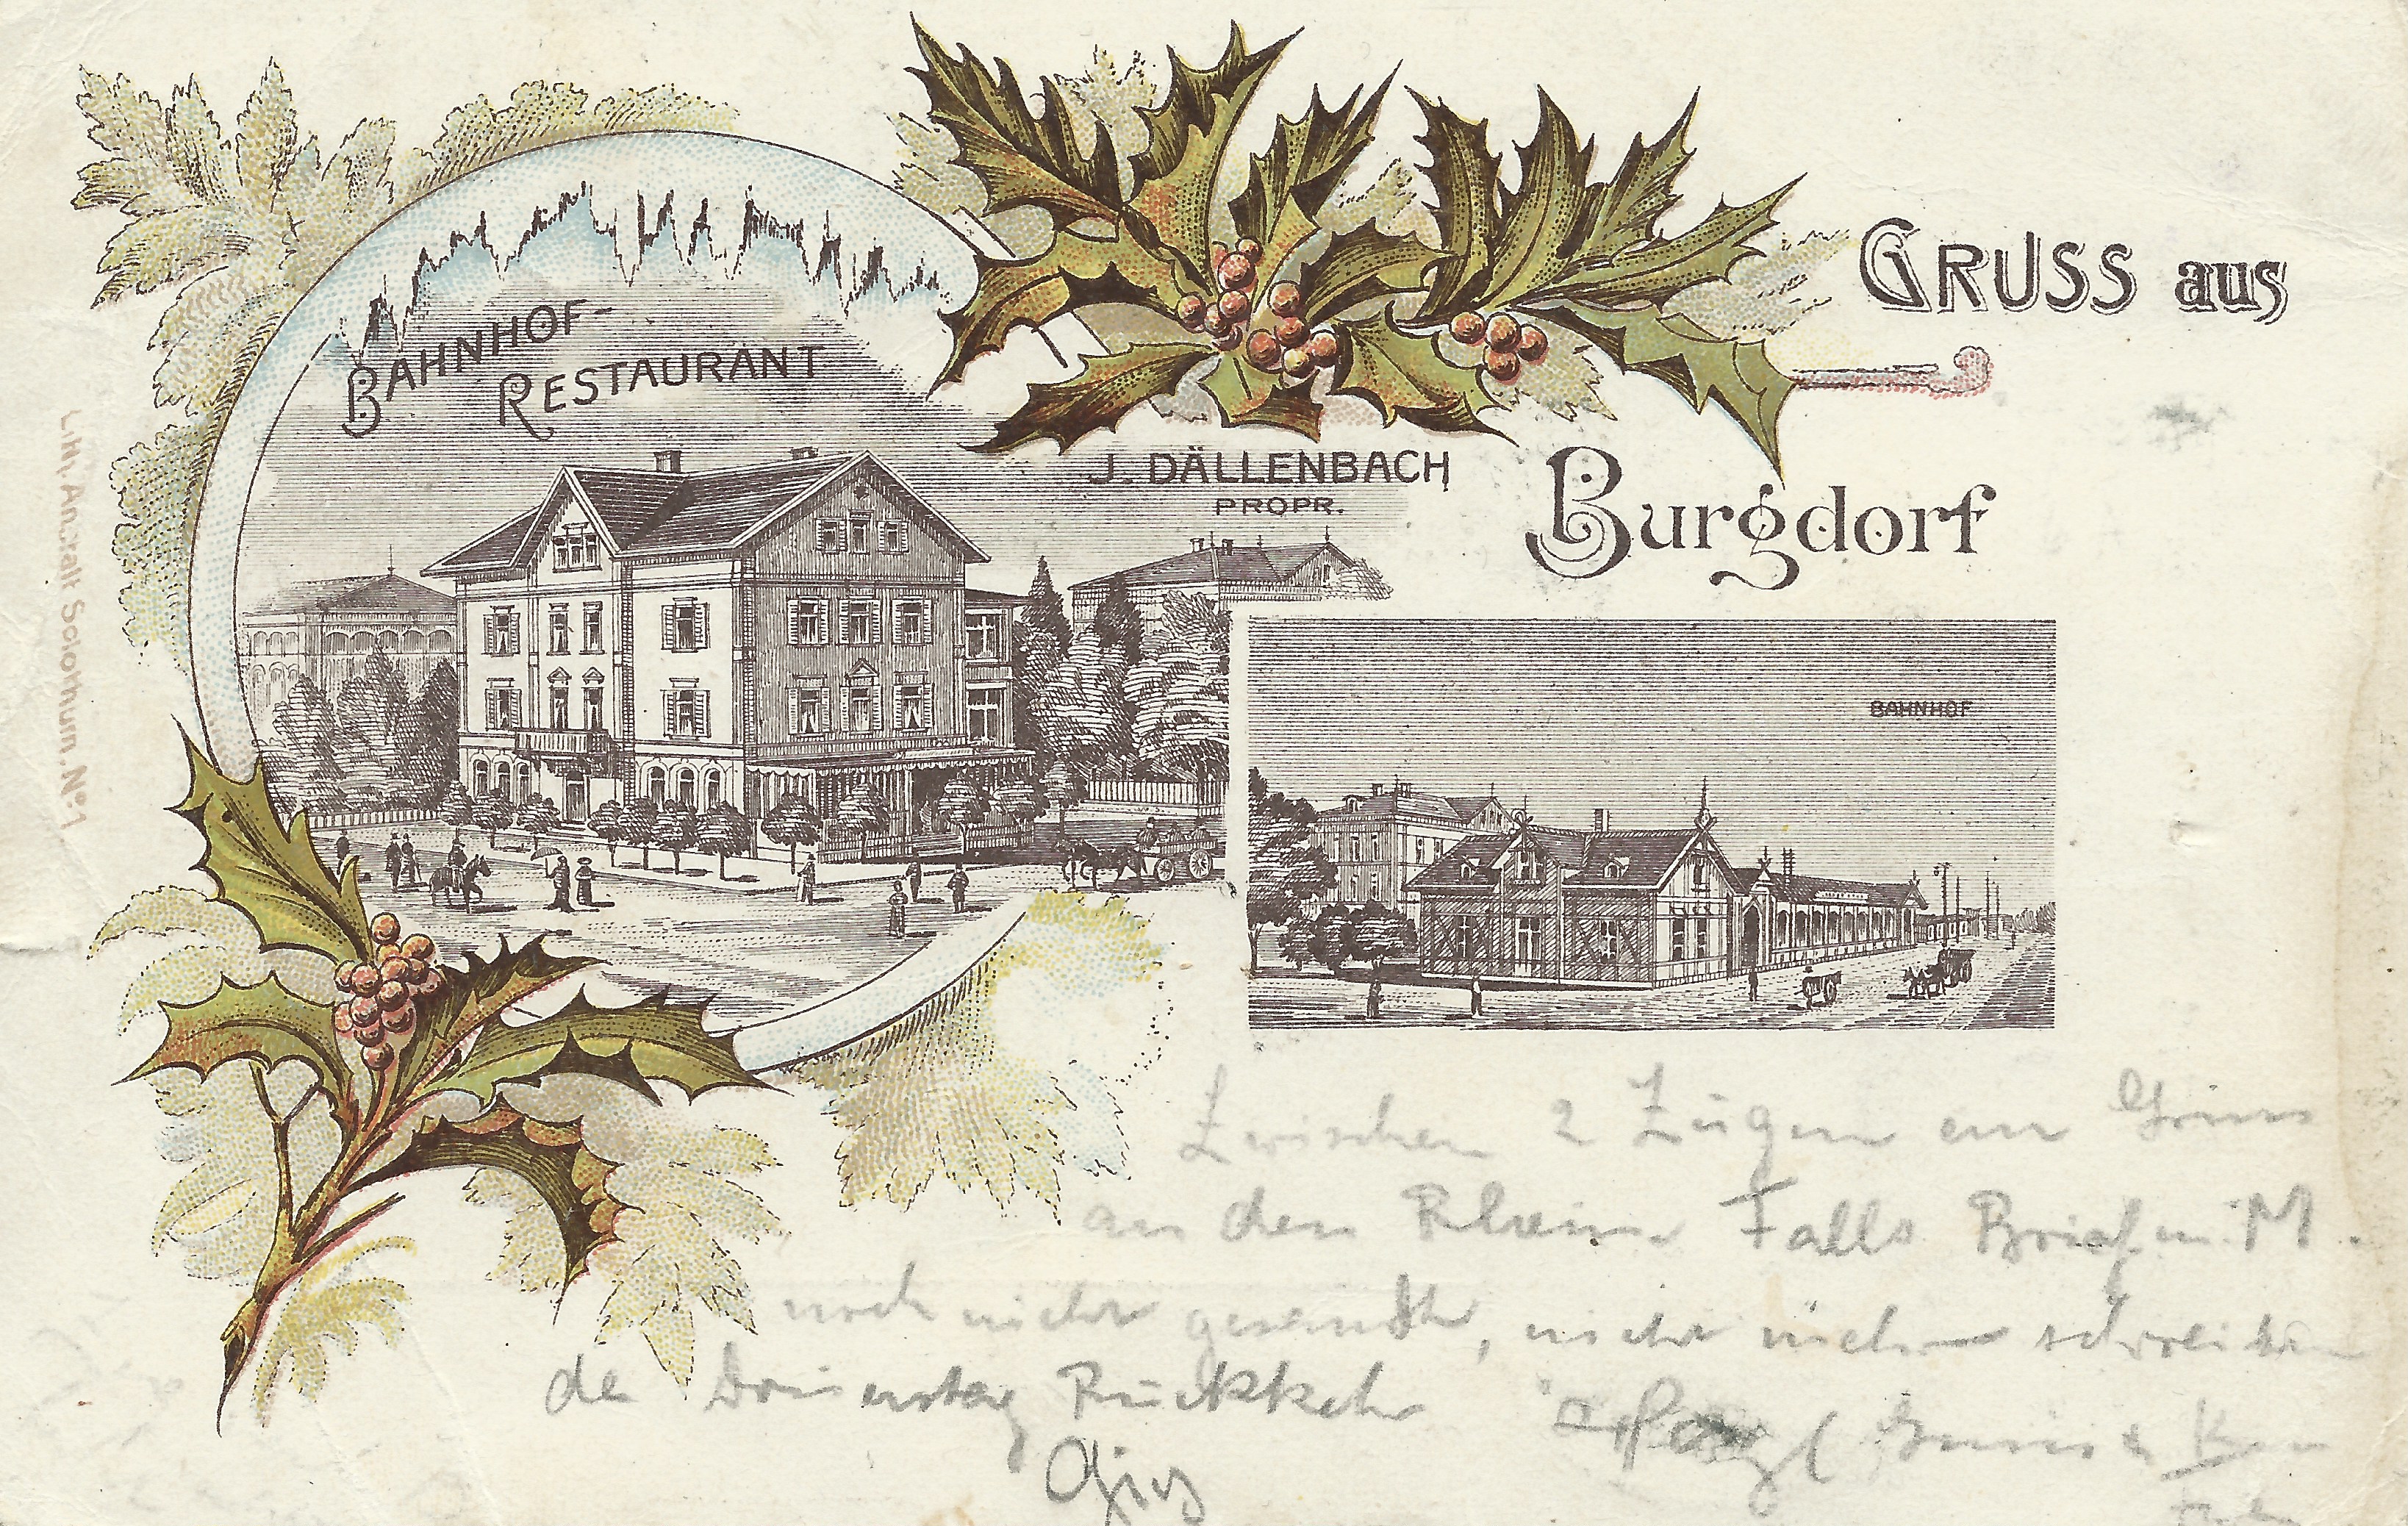 GRUSS aus
BAHNHOF-
RESTAURANT
J. DÄLLENBACH
PROPR.
Burgdorf
BAHNHOF
Lith. Anstalt Solothurn. No 1
Zwischen 2 Zügen ein Gruss
an den Falls Brief m. M.
noch nicht gesandt, nicht mehr schreiben
da Donnerstag Rückkehr